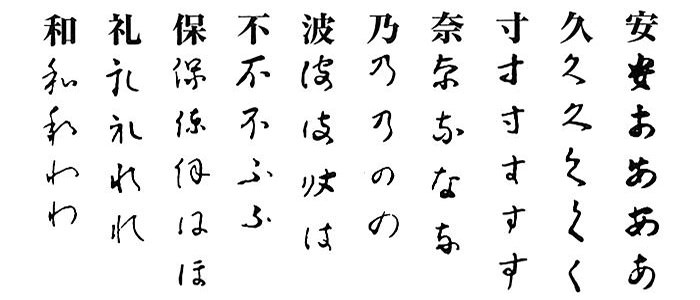 安安ああああ
久久久くくく
寸寸寸すすす
奈奈ななな
乃乃乃のの
波波波はは
不不不ふふ
保保保保ほほ
礼礼礼れれ
和和和わわ